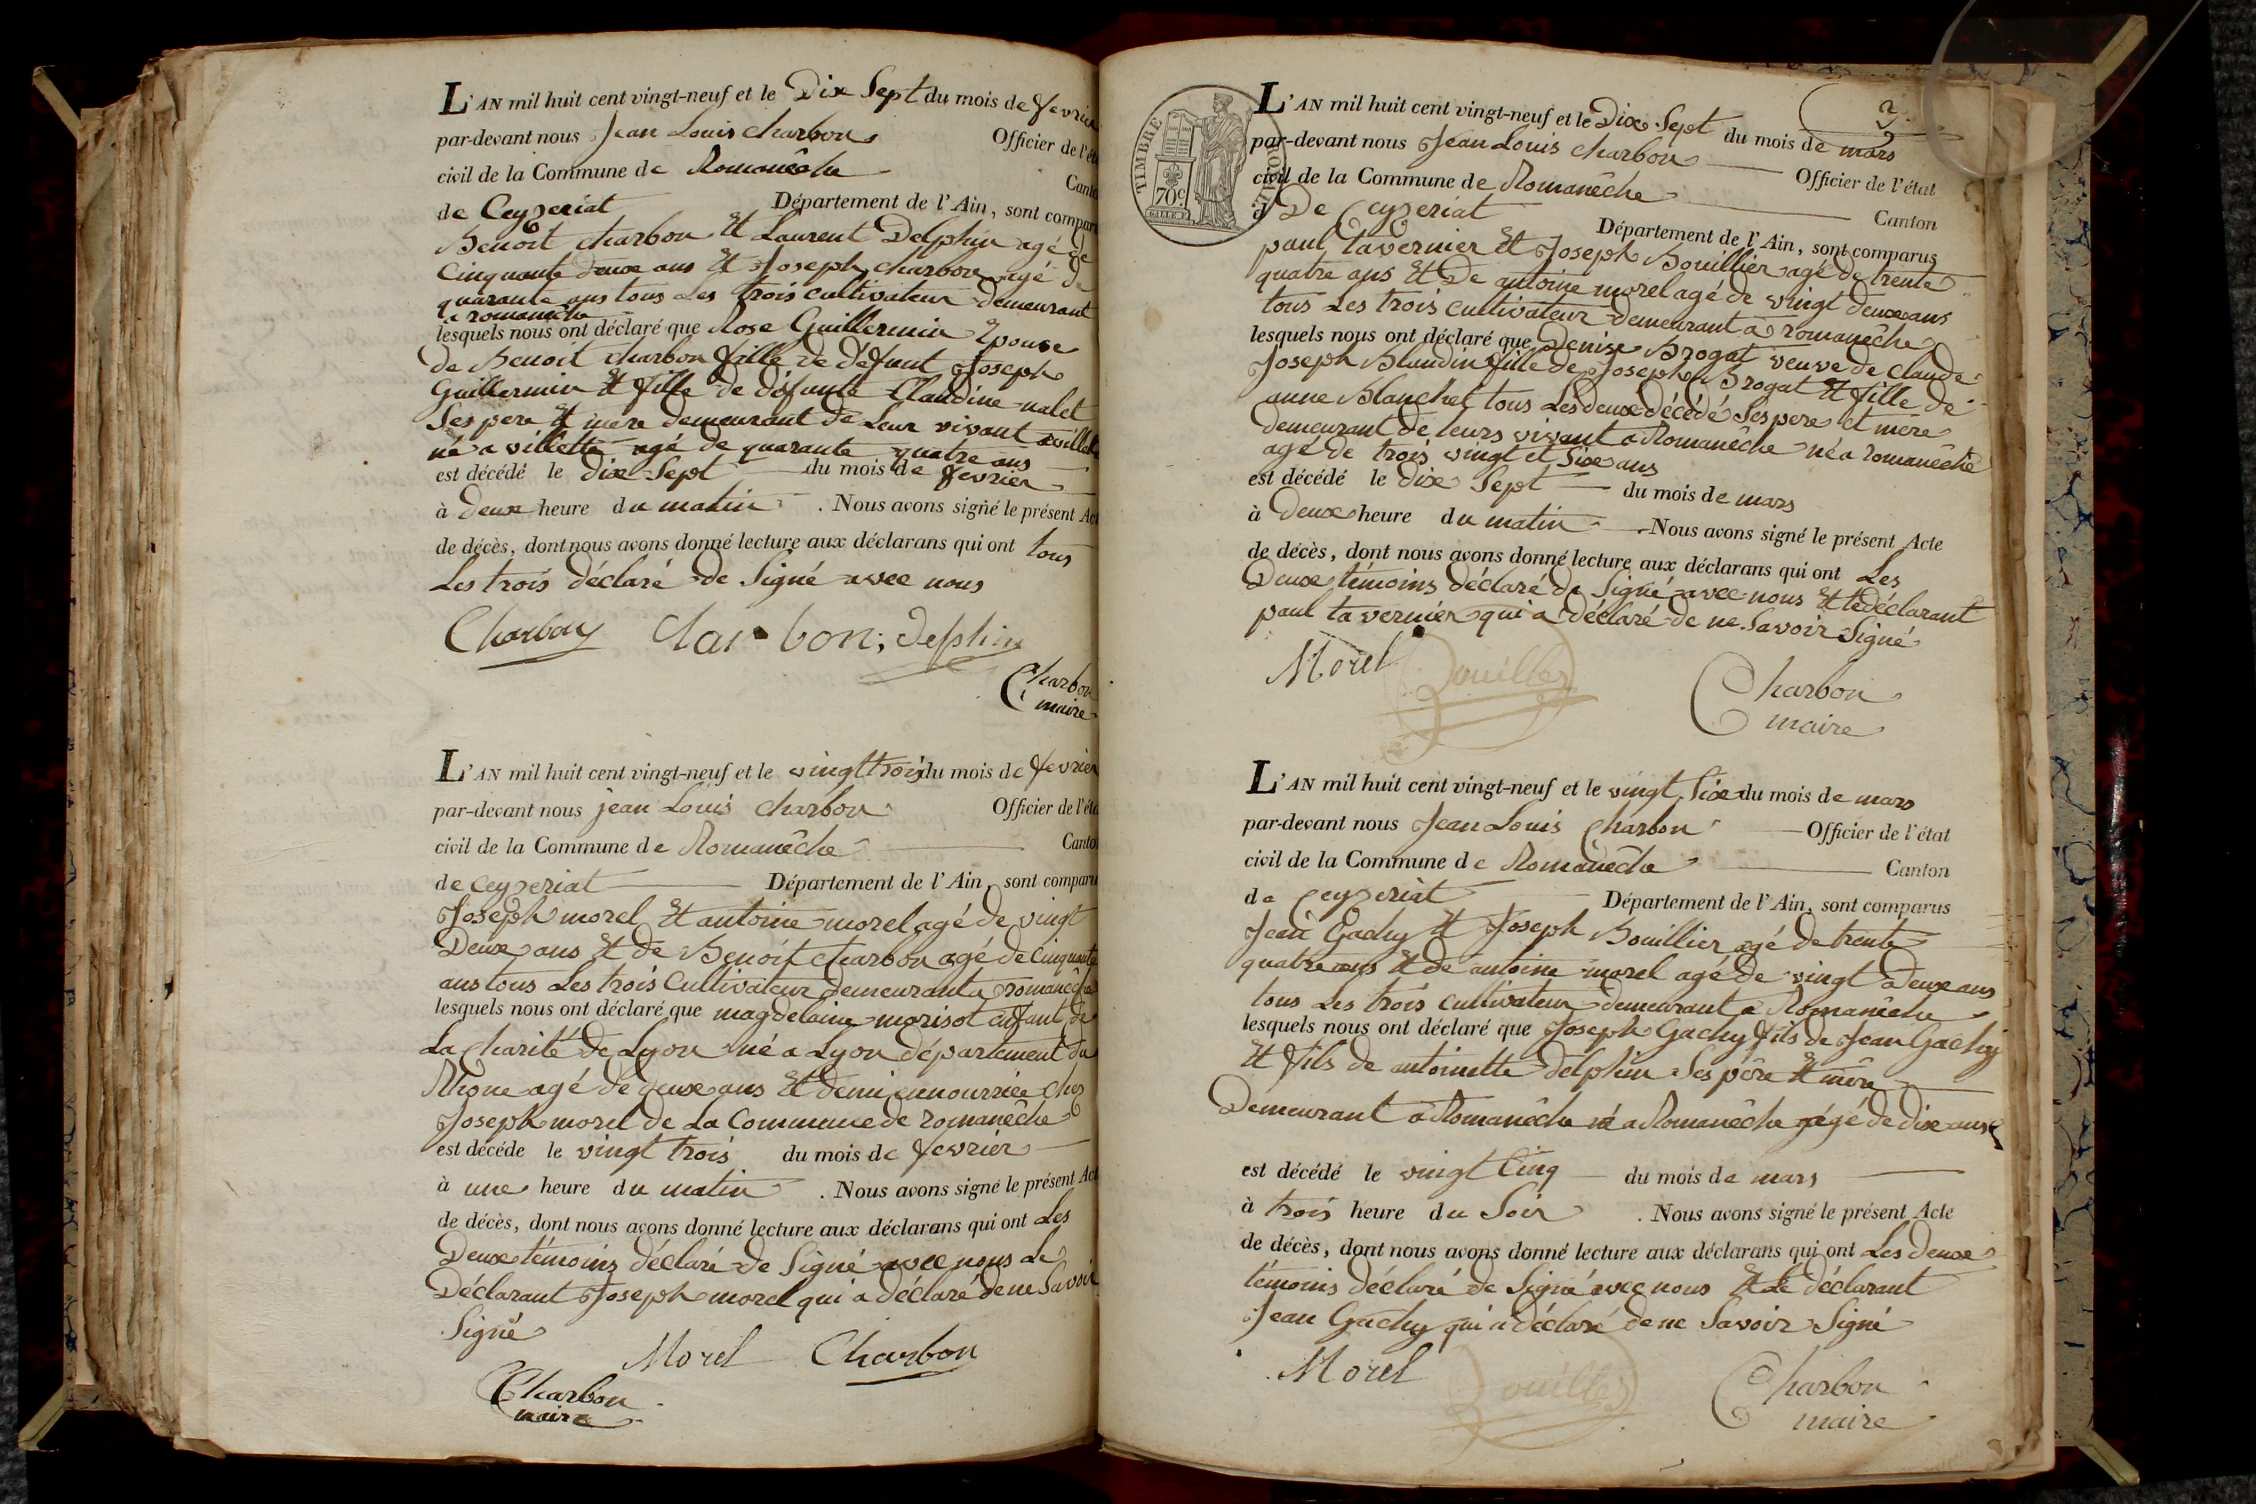 L'AN mil huit cent vingt-neuf et le Dix Sept du mois de fevrier
par-devant nous Jean Louis charbon Officier de l'éta
civil de la Commune de Romanêche Canto
de Ceyzeriat Département de l'Ain, sont compar
Benoit charbon Et Laurent Delphin agé de
Cinquante deux ans Et Joseph charbon agé de
quarante ans tous Les trois cultivateur demeurant
a romanêche
lesquels nous ont déclaré que Rose Guillermin Epouse
de Benoit charbon fille de défunt Joseph
Guillermin Et fille de défunte Claudine nalet
Ses pere Et mere demeurant de Leur vivant a villette
né a villette agé de quarante quatre ans
est décédé le dix Sept du mois de fevrier
à deux heure du matin . Nous avons signé le présent Act
de décès, dont nous avons donné lecture aux déclarans qui ont tous
Les trois déclaré de Signé avec nous
Charbon Charbon; Delphin
Charbon
maire
L'AN mil huit cent vingt-neuf et le vingt trois du mois de fevrier
par-devant nous jean Louis charbon Officier de l'éta
civil de la Commune de Romanêche Canto
de Ceyzeriat Département de l'Ain, sont comparu
Joseph morel Et antoine morel agé de vingt
Deux ans Et de Benoit charbon agé de Cinquante
ans tous Les trois Cultivateur Demeurant a romanêche
lesquels nous ont déclaré que magdelaine morisot enfant de
La Charité de Lyon né a Lyon département du
Rhone agé de deux ans Et demi ennourrice chez
Joseph morel de La Commune de romanêche
est décédé le vingt trois du mois de fevrier
à une heure du matin . Nous avons signé le présent Act
de décès, dont nous avons donné lecture aux déclarans qui ont Les
Deux témoins déclaré de Signé avec nous Le
Déclarant Joseph morel qui a déclaré de ne Savoir
Signé
Morel Charbon
Charbon
maire
2
TIMBRE ROYAL
70c
L'AN mil huit cent vingt-neuf et le Dix Sept du mois de mars
par-devant nous Jean Louis charbon Officier de l'état
civil de la Commune de Romanêche Canton
d De Ceyzeriat Département de l'Ain, sont comparus
paul tavernier Et Joseph Bouillier agé de trente
quatre ans Et De antoine morel agé de vingt deux ans
tous Les trois Cultivateur demeurant a romanêche
lesquels nous ont déclaré que Denise Brogat veuve de claude
Joseph Blandin fille de Joseph Brogat Et fille de
anne Blanchet tous Les deux décédé Ses pere et mere
demeurant de leurs vivant a Romanêche né a romanêche
agé de trois vingt et Six ans
est décédé le dix Sept du mois de mars
à deux heure du matin . Nous avons signé le présent Acte
de décès, dont nous avons donné lecture aux déclarans qui ont Les
Deux témoins déclaré de Signé avec nous Et le déclarant
paul tavernier qui a déclaré de ne Savoir Signé
Morel Bouillier
Charbon
maire
L'AN mil huit cent vingt-neuf et le vingt Six du mois de mars
par-devant nous Jean Louis charbon Officier de l'état
civil de la Commune de Romanêche Canton
de Ceyzeriat Département de l'Ain, sont comparus
Jean Gachy Et Joseph Bouillier agé de trente
quatre ans Et de antoine morel agé de vingt Deux ans
tous Les trois cultivateur demeurant a Romanêche
lesquels nous ont déclaré que Joseph Gachy fils de Jean Gachy
Et fils de antoinette delphin Ses père Et mère
Demeurant a Romanêche né a Romanêche agé de dix ans
est décédé le vingt Cinq du mois de mars
à trois heure du Soir . Nous avons signé le présent Acte
de décès, dont nous avons donné lecture aux déclarans qui ont Les deux
témoins déclaré de Signé avec nous Et Le déclarant
Jean Gachy qui a déclaré de ne Savoir Signé
Morel Bouillier
Charbon
maire